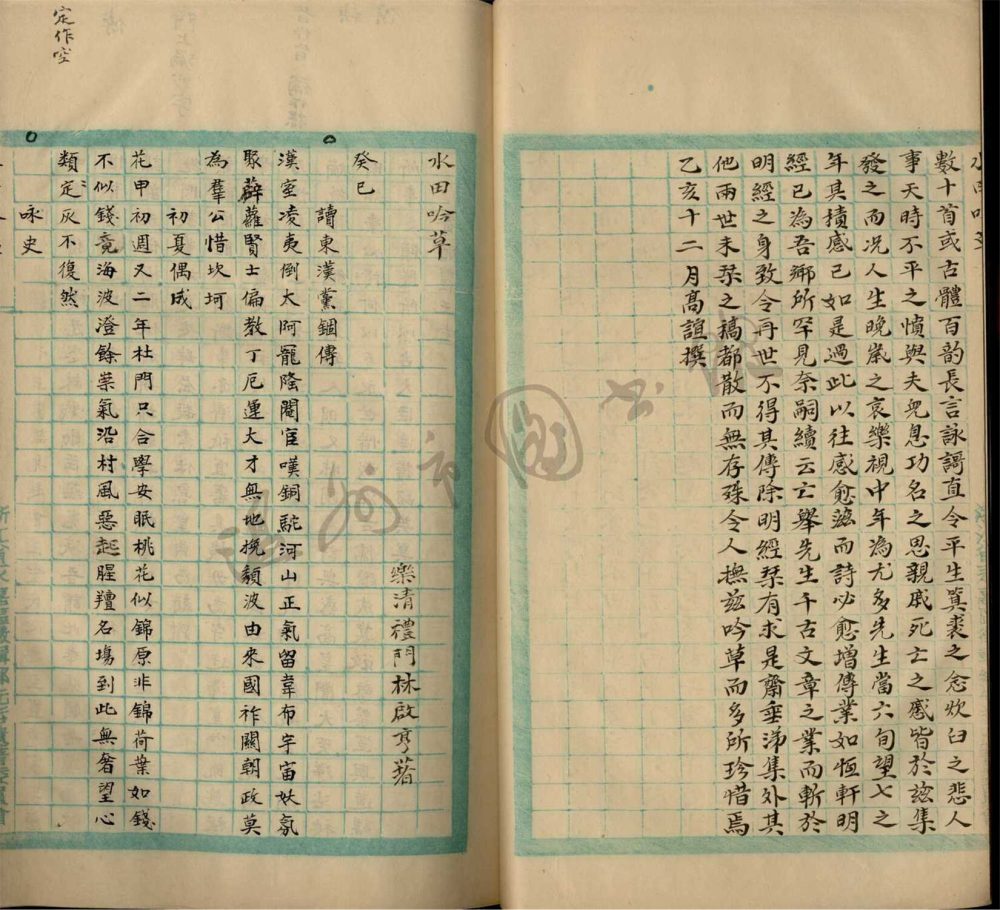 數十首或古體百韵長言詠謌直令平生箕裘之念炊臼之悲人
事天時不平之憤與夫兒息功名之思親戚死亡之感皆於茲集
發之而况人生晚歲之哀樂視中年為尤多先生當六旬望七之
年其積感已如是過此以往感愈深而詩必愈增傳業如恆軒明
經已為吾鄉所罕見奈嗣續云亡舉先生千古文章之業而斬於
明經之身致令再世不得其傳除明經栞有求是齋垂涕集外其
他兩世未栞之稿都散而無存殊令人撫茲吟草而多所珍惜焉
乙亥十二月高誼撰
定作空
水田吟草
樂清禮門林啟亨著
癸巳
讀東漢黨錮傳
漢室凌夷倒太阿寵隆閹宦嘆銅駝河山正氣留韋布宇宙妖氛
聚薜蘿賢士偏教丁厄運大才無地挽頹波由來國祚關朝政莫
為羣公惜坎坷
初夏偶成
花甲初週又二年杜門只合學安眠桃花似錦原非錦荷葉如錢
不似錢竟海波澄餘葉氣沿村風惡起腥羶名場到此無奢望心
類定灰不復然
咏史